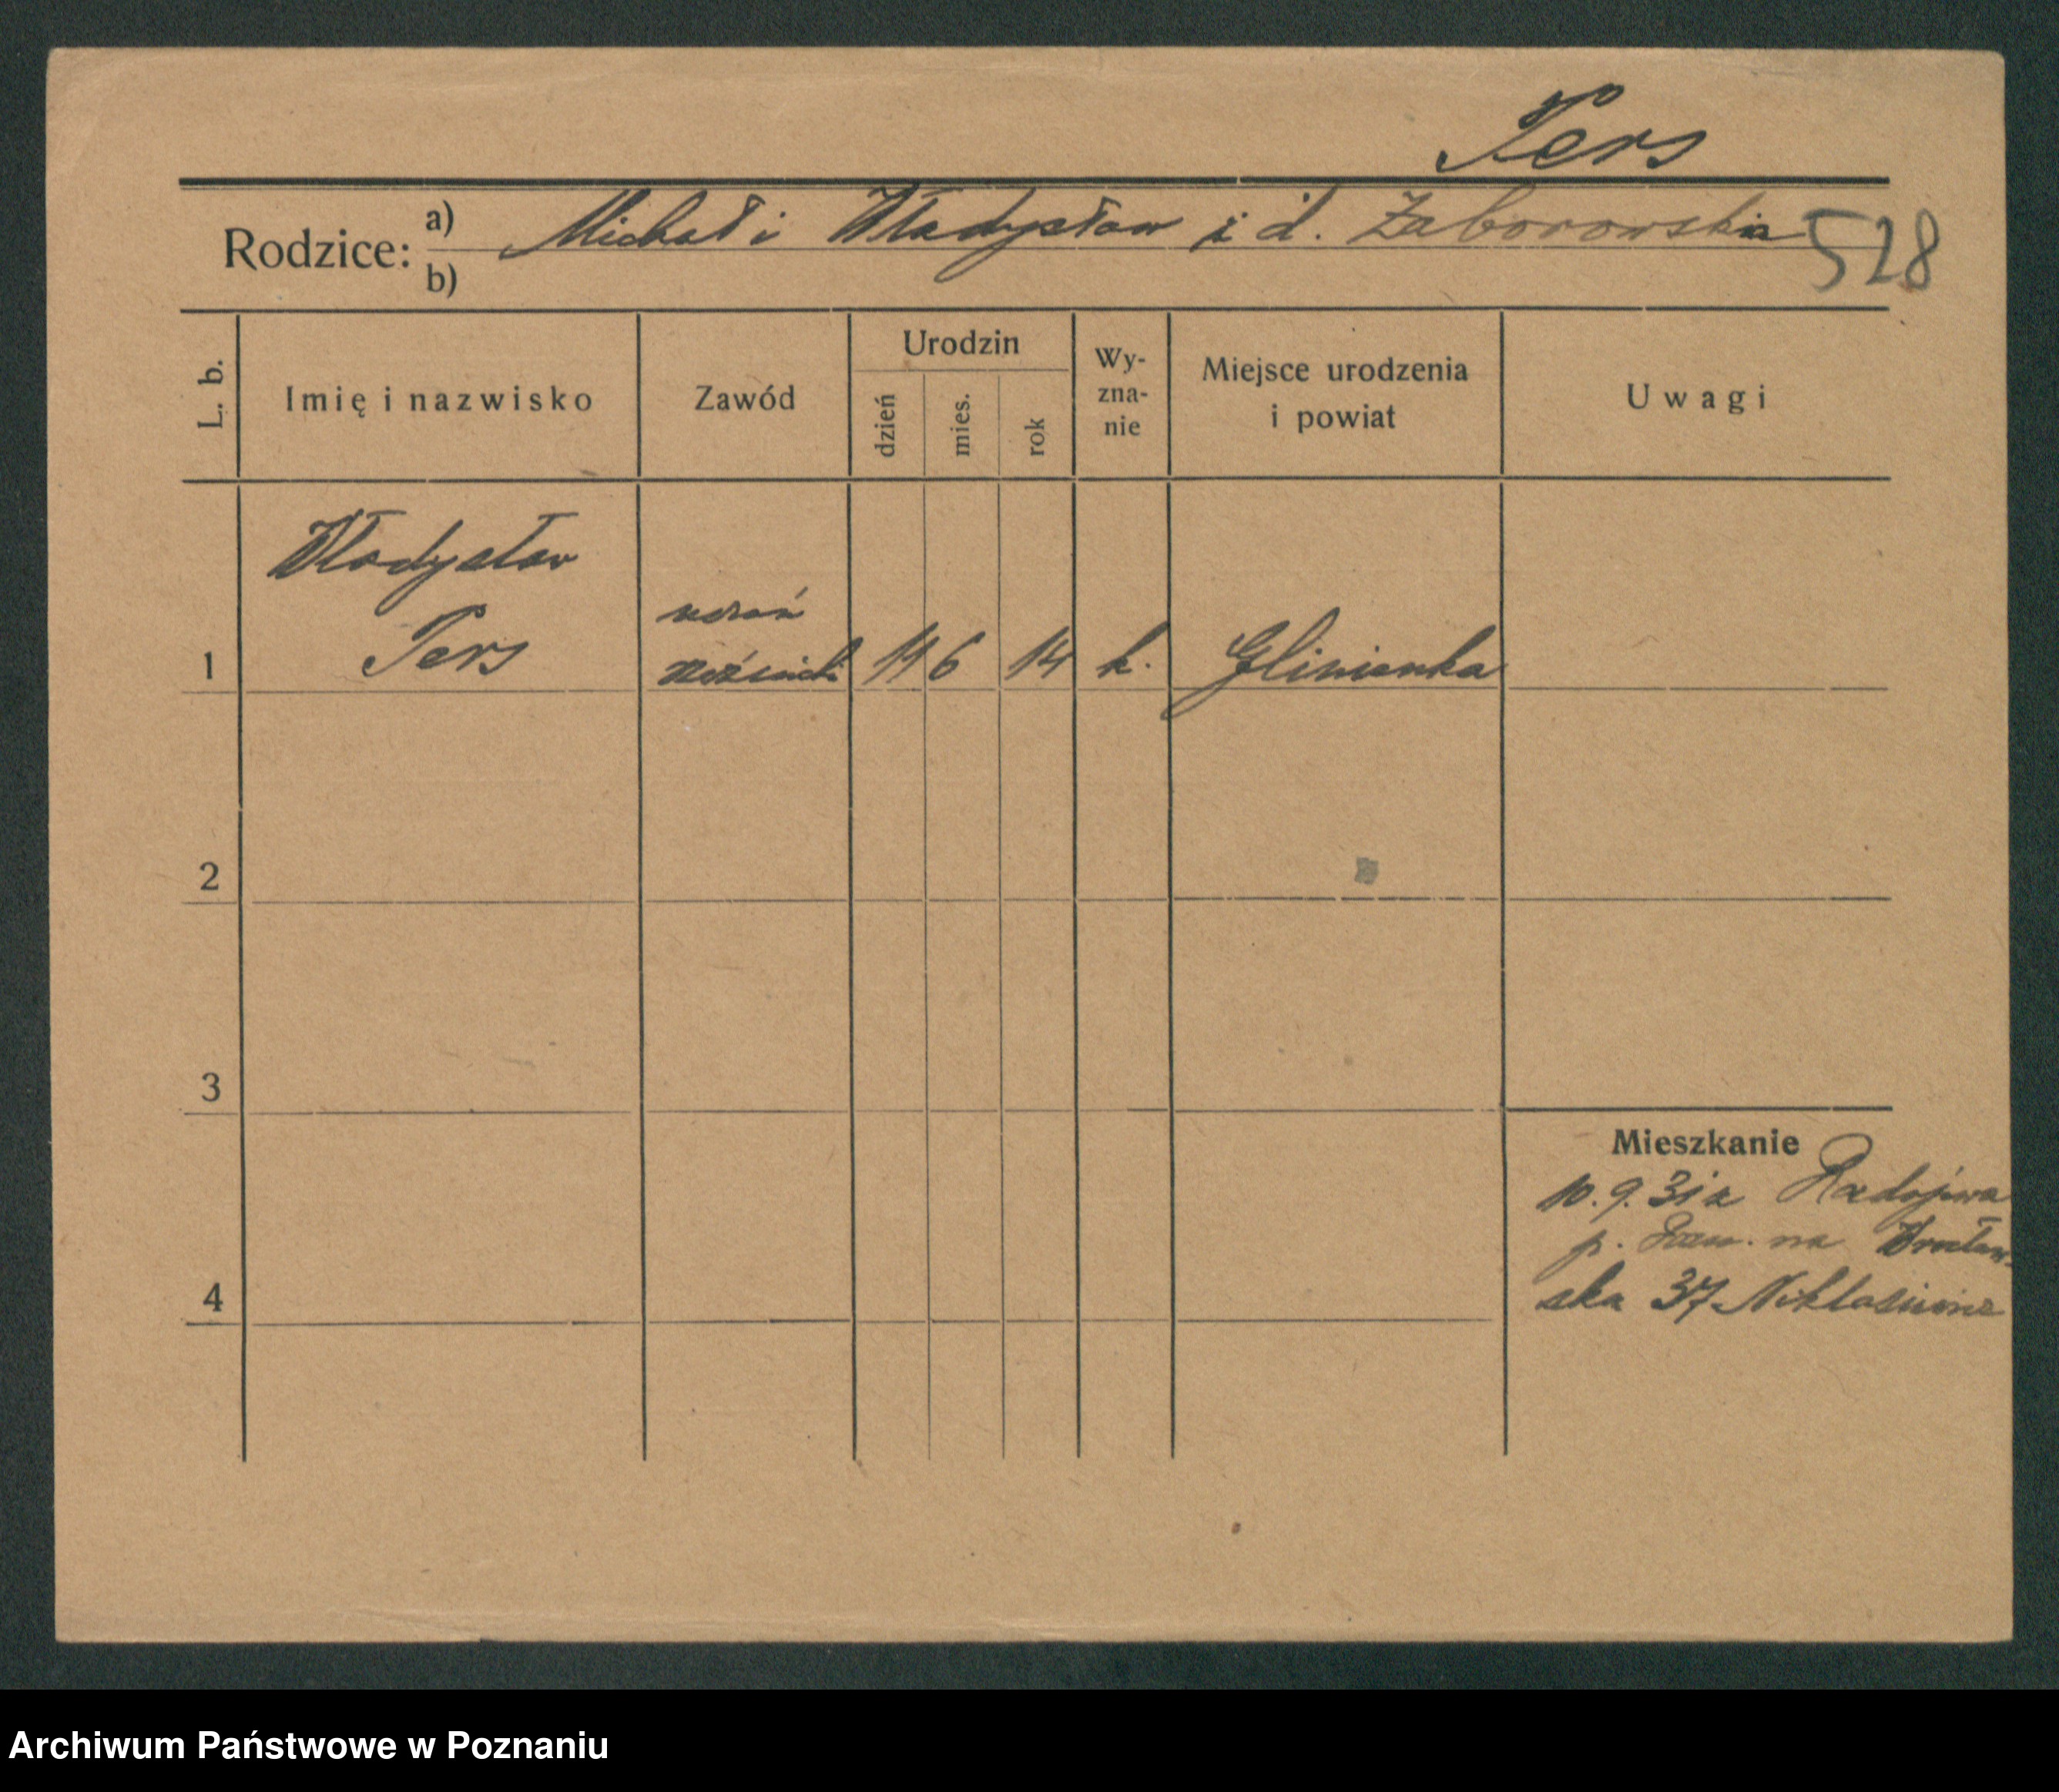 Pers
Rodzice:
a) Michał i Władysław z d. Zaborowskia
b)
528
L. b.
Imię i nazwisko
Zawód
Urodzin
dzień
mies.
rok
Wy-
zna-
nie
Miejsce urodzenia
i powiat
Uwagi
Władysław
uczeń
1 Pers 14 6 14 k. Glinienka
2
3
Mieszkanie
10.9.31 z Radojewa
p. Pozn. na Wrocław-
ska 37
4
Archiwum Państwowe w Poznaniu